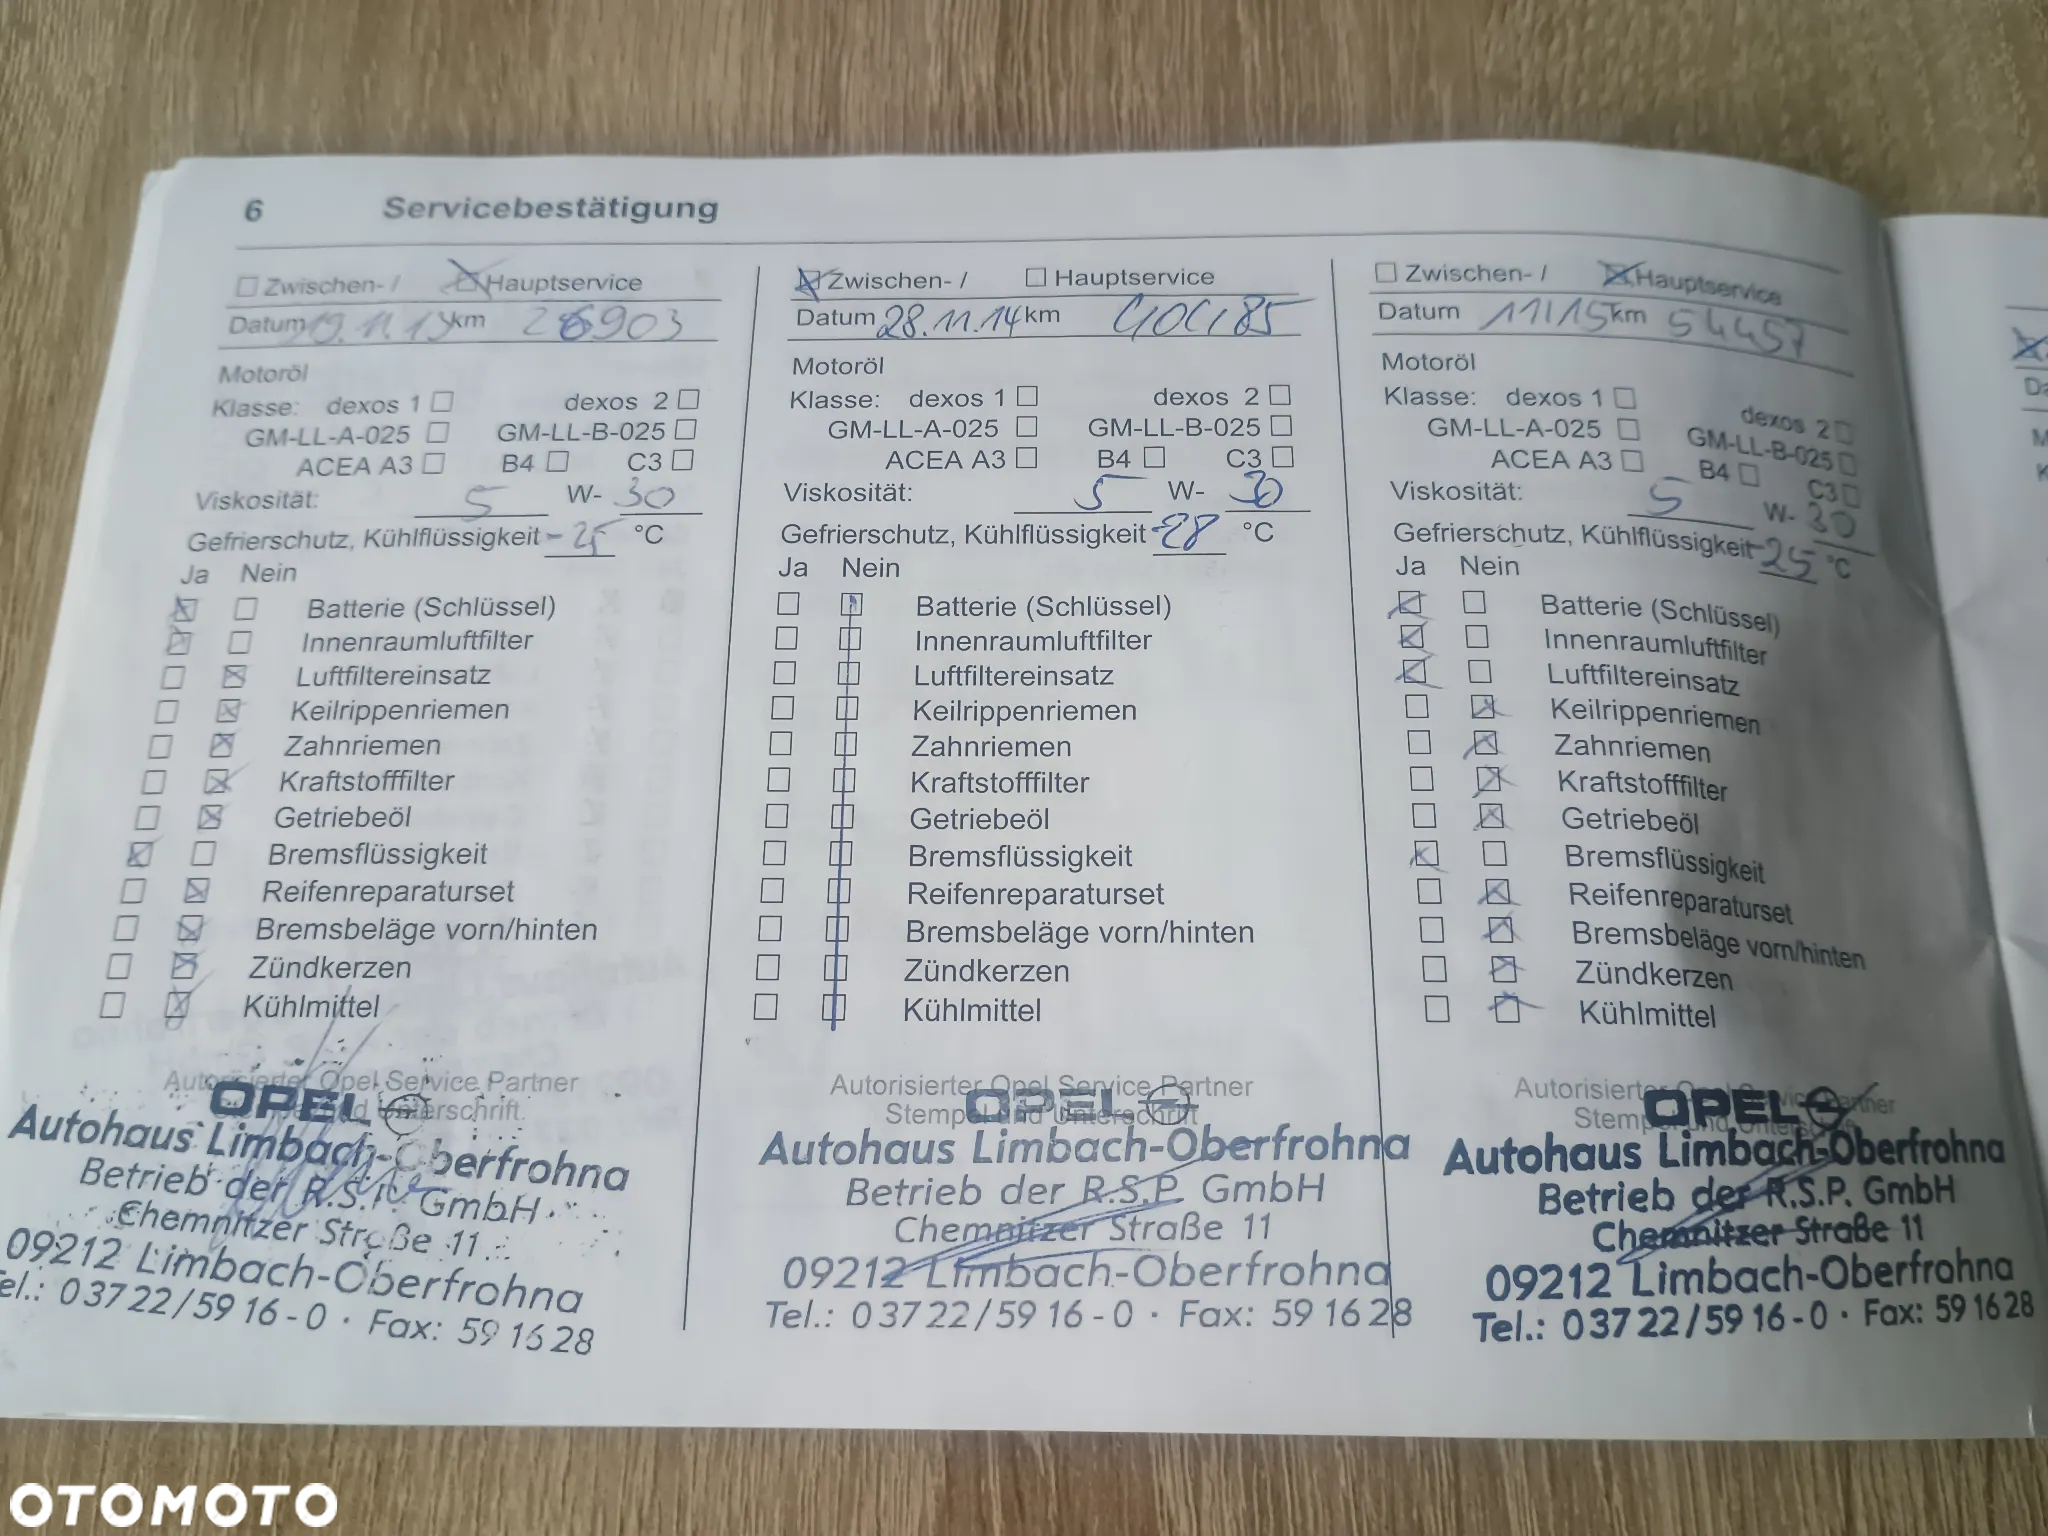 6 Servicebestätigung
Zwischen- / Hauptservice
Datum 19.11.13 km 26903
Motoröl
Klasse: dexos 1 dexos 2
GM-LL-A-025 GM-LL-B-025
ACEA A3 B4 C3
Viskosität: 5 W- 30
Gefrierschutz, Kühlflüssigkeit -25 °C
Ja Nein
Batterie (Schlüssel)
Innenraumluftfilter
Luftfiltereinsatz
Keilrippenriemen
Zahnriemen
Kraftstofffilter
Getriebeöl
Bremsflüssigkeit
Reifenreparaturset
Bremsbeläge vorn/hinten
Zündkerzen
Kühlmittel
Autorisierter Opel Service Partner
und Unterschrift
OPEL
Autohaus Limbach-Oberfrohna
Betrieb der R.S.P. GmbH
Chemnitzer Straße 11
09212 Limbach-Oberfrohna
Tel.: 03722/5916-0 · Fax: 591628
Zwischen- / Hauptservice
Datum 28.11.14 km
Motoröl
Klasse: dexos 1 dexos 2
GM-LL-A-025 GM-LL-B-025
ACEA A3 B4 C3
Viskosität: 5 W- 30
Gefrierschutz, Kühlflüssigkeit -28 °C
Ja Nein
Batterie (Schlüssel)
Innenraumluftfilter
Luftfiltereinsatz
Keilrippenriemen
Zahnriemen
Kraftstofffilter
Getriebeöl
Bremsflüssigkeit
Reifenreparaturset
Bremsbeläge vorn/hinten
Zündkerzen
Kühlmittel
Autorisierter Opel Service Partner
Stempel und Unterschrift
OPEL
Autohaus Limbach-Oberfrohna
Betrieb der R.S.P. GmbH
Chemnitzer Straße 11
09212 Limbach-Oberfrohna
Tel.: 03722/5916-0 · Fax: 591628
Zwischen- / Hauptservice
Datum 11/15 km 54457
Motoröl
Klasse: dexos 1 dexos 2
GM-LL-A-025 GM-LL-B-025
ACEA A3 B4 C3
Viskosität: 5 W- 30
Gefrierschutz, Kühlflüssigkeit -25 °C
Ja Nein
Batterie (Schlüssel)
Innenraumluftfilter
Luftfiltereinsatz
Keilrippenriemen
Zahnriemen
Kraftstofffilter
Getriebeöl
Bremsflüssigkeit
Reifenreparaturset
Bremsbeläge vorn/hinten
Zündkerzen
Kühlmittel
Autorisierter Opel Service Partner
Stempel und Unterschrift
OPEL
Autohaus Limbach-Oberfrohna
Betrieb der R.S.P. GmbH
Chemnitzer Straße 11
09212 Limbach-Oberfrohna
Tel.: 03722/5916-0 · Fax: 591628
OTOMOTO